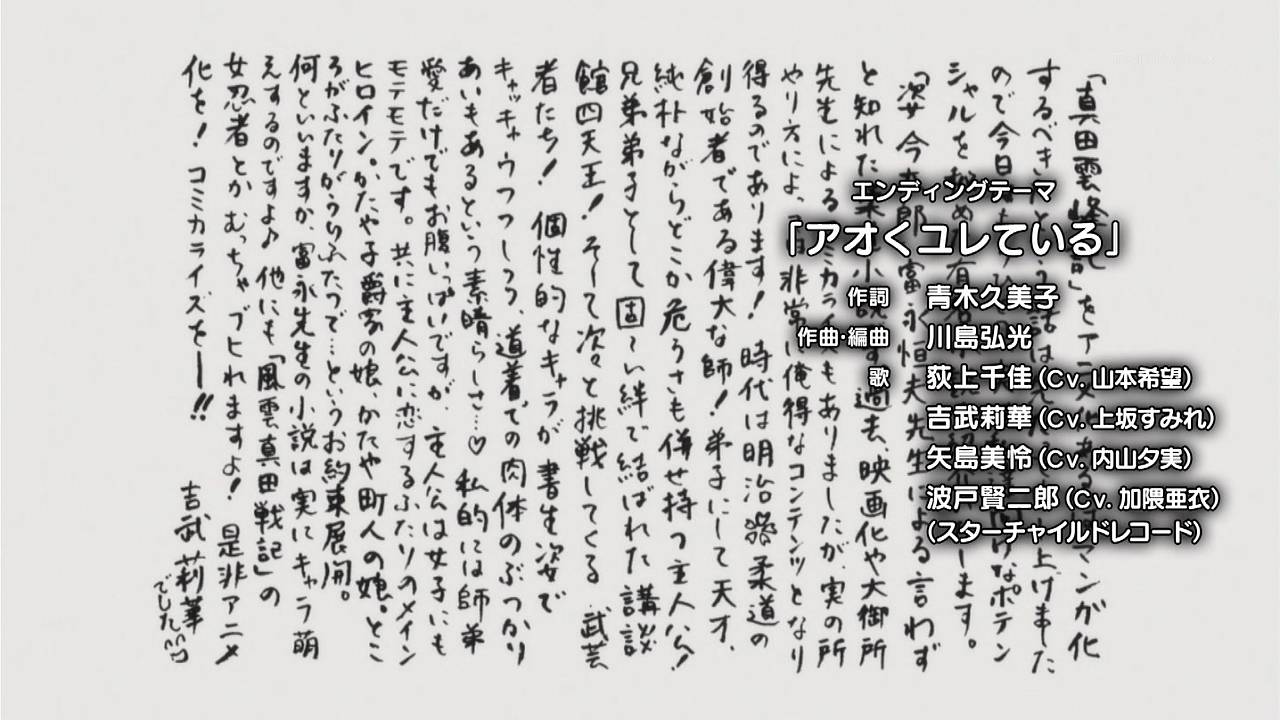 「真田雲峰記」をアニ化ある　マンガ化
するべきだという話は先　上げました
ので今日　なポテン
シャルを秘め　有　します。
「姿　今　郎　富永恒夫先生による言わず
と知れた　小説　す　過去、映画化や大御所
先生によるコミカライズもありましたが、実の所
やり方によっては非常に俺得なコンテンツとなり
得るのであります！時代は明治　柔道の
創始者である偉大な師！弟子にして天才、
純朴ながらどこか危うさも併せ持つ主人公！
兄弟弟子として固〜い絆で結ばれた講談
館四天王！そして次々と挑戦してくる　武芸
者たち！　個性的なキャラが　書生姿で
キャッキャウフフしつつ、道着での肉体のぶつかり
あいもあるという素晴らしさ♡　私的には師弟
愛だけでもお腹いっぱいですが、主人公は女子にも
モテモテです。共に主人公に恋するふたりのメイン
ヒロイン。かたや子爵家の娘、かたや町人の娘。とこ
ろがふたりがうりふたつで…というお約束展開。
何といいますか、富永先生の小説は実にキャラ萌
えするのですよ♪他にも「風雲真田戦記」の
女忍者とかむっちゃブヒれますよ！是非アニメ
化を！コミカライズをー!!
吉武莉華
でした
エンディングテーマ
「アオくユレている」
作詞　青木久美子
作曲・編曲　川島弘光
歌　荻上千佳(Cv. 山本希望)
吉武莉華(Cv. 上坂すみれ)
矢島美怜(Cv. 内山夕実)
波戸賢二郎(Cv. 加隈亜衣)
(スターチャイルドレコード)